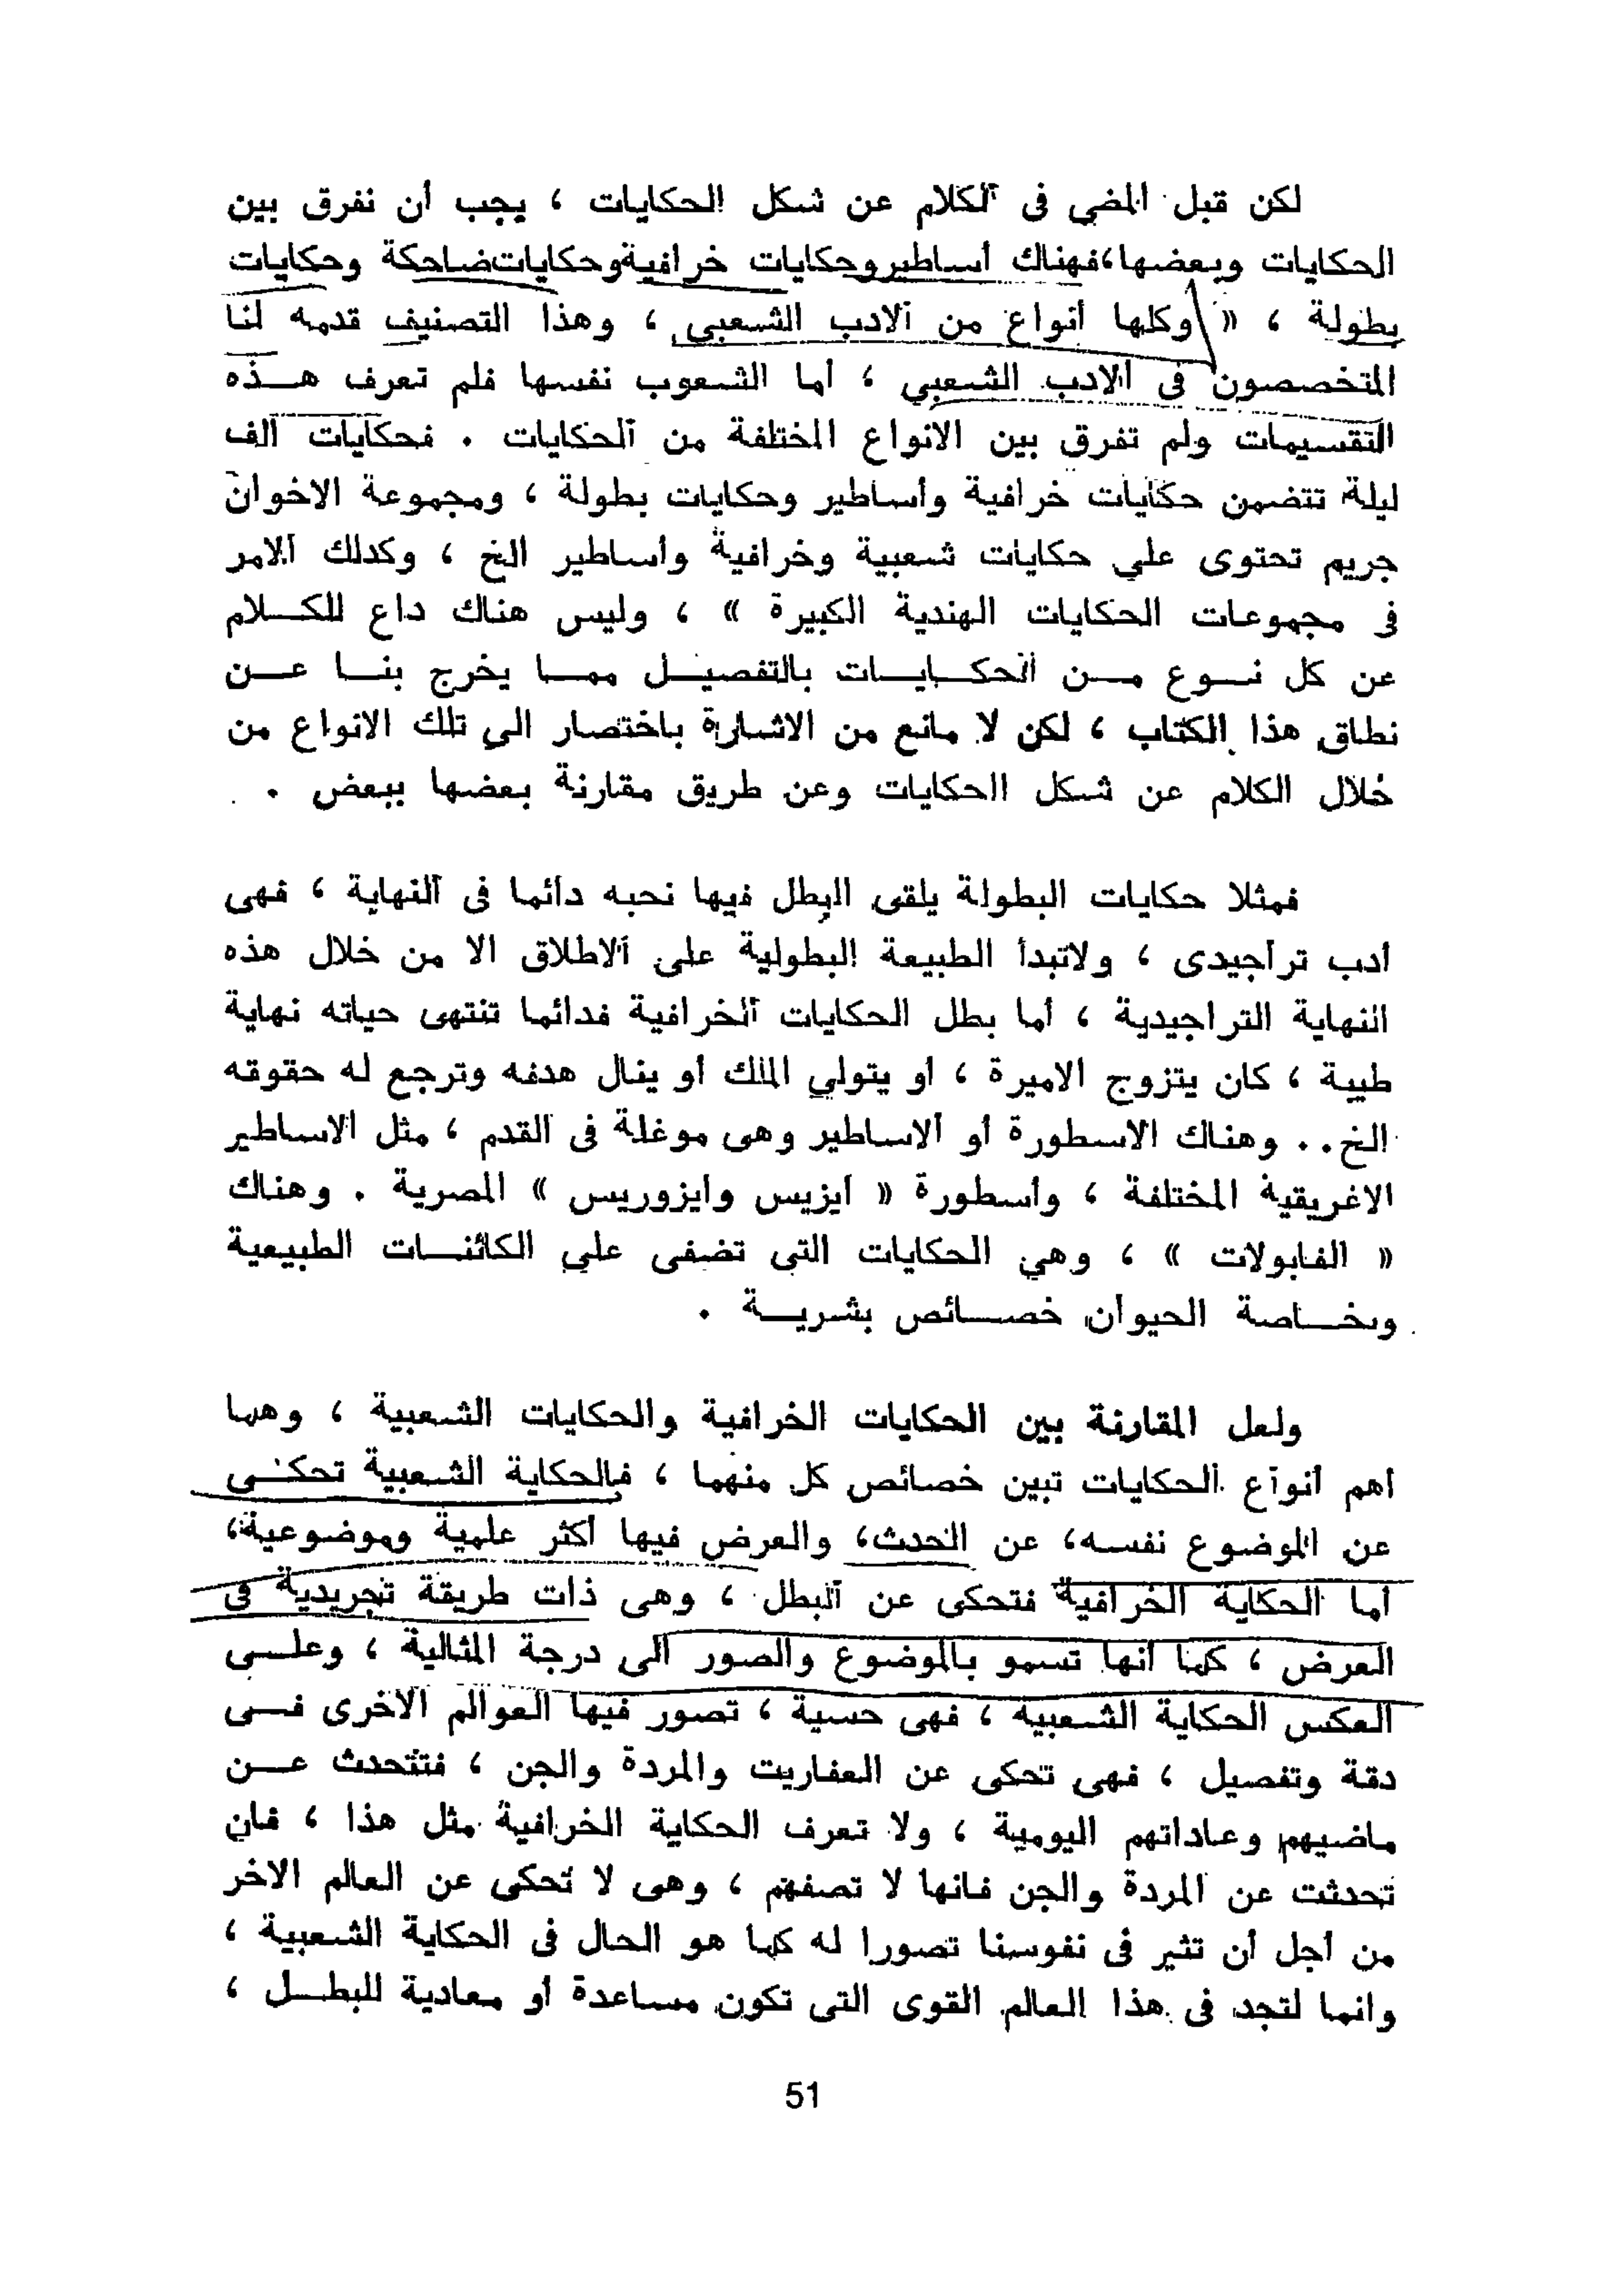 لكن قبل المضي فى الكلام عن شكل الحكايات ، يجب أن نفرق بين
الحكايات وبعضها،فهناك أساطيروحكايات خرافيةوحكاياتضاحكة وحكايات
بطولة ، « وكلها أنواع من الادب الشعبى ، وهذا التصنيف قدمه لنا
المتخصصون فى الادب الشعبي ، أما الشعوب نفسها فلم تعرف هـــذه
التقسيمات ولم تفرق بين الانواع المختلفة من الحكايات . فحكايات ألف
ليلة تتضمن حكايات خرافية وأساطير وحكايات بطولة ، ومجموعة الاخوان
جريم تحتوى على حكايات شعبية وخرافية وأساطير الخ ، وكدلك الامر
فى مجموعات الحكايات الهندية الكبيرة » ، وليس هناك داع للكـــلام
عن كل نـــوع مـــن الحكـــايـــات بالتفصيـــل ممـــا يخرج بنـــا عـــن
نطاق هذا الكتاب ، لكن لا مانع من الاشارة باختصار الى تلك الانواع من
خلال الكلام عن شكل الحكايات وعن طريق مقارنة بعضها ببعض .
فمثلا حكايات البطولة يلقى البطل فيها نحبه دائما فى النهاية ، فهى
أدب تراجيدى ، ولاتبدأ الطبيعة البطولية على الاطلاق الا من خلال هذه
النهاية التراجيدية ، أما بطل الحكايات الخرافية فدائما تنتهى حياته نهاية
طيبة ، كان يتزوج الاميرة ، أو يتولي الملك أو ينال هدفه وترجع له حقوقه
الخ . . وهناك الاسطورة أو الاساطير وهى موغلة فى القدم ، مثل الاساطير
الاغريقية المختلفة ، وأسطورة « ايزيس وايزوريس » المصرية . وهناك
« الفابولات » ، وهي الحكايات التى تضفى علي الكائنـــات الطبيعية
وبخـــاصة الحيوان خصـــائص بشريـــة .
ولعل المقارنة بين الحكايات الخرافية والحكايات الشعبية ، وهما
أهم أنواع الحكايات تبين خصائص كل منهما ، فالحكاية الشعبية تحكـــى
عن الموضوع نفسه، عن الحدث، والعرض فيها أكثر علمية وموضوعية،
أما الحكاية الخرافية فتحكى عن البطل ، وهى ذات طريقة تجريدية فى
العرض ، كما أنها تسمو بالموضوع والصور الى درجة المثالية ، وعلـــى
العكس الحكاية الشعبية ، فهى حسية ، تصور فيها العوالم الاخرى فـــى
دقة وتفصيل ، فهى تحكى عن العفاريت والمردة والجن ، فتتحدث عـــن
ماضيهم وعاداتهم اليومية ، ولا تعرف الحكاية الخرافية مثل هذا ، فان
تحدثت عن المردة والجن فانها لا تصفهم ، وهى لا تحكى عن العالم الاخر
من أجل أن تثير فى نفوسنا تصورا له كما هو الحال فى الحكاية الشعبية ،
وانما لتجد فى هذا العالم القوى التى تكون مساعدة أو معادية للبطـــل ،
51